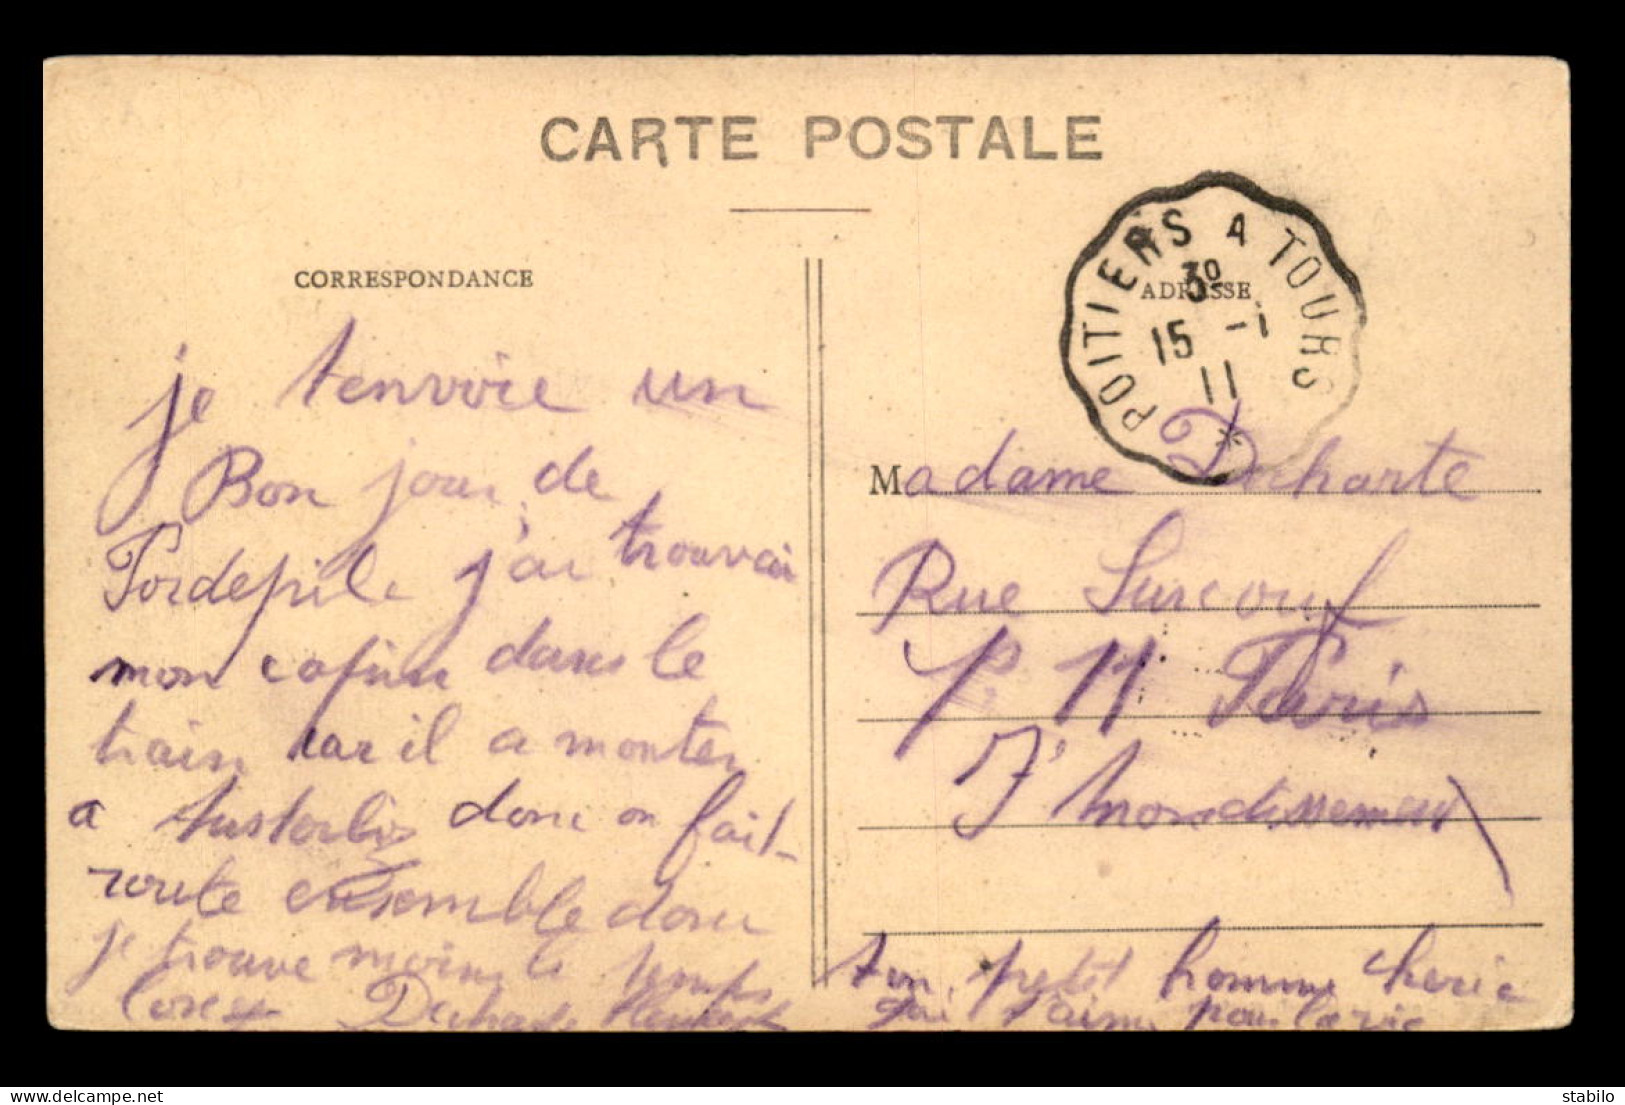 CARTE POSTALE
CORRESPONDANCE
je t'envoie un
Bon jour de
Pordepile j'ai trouvair
mon copin dans le
train car il a monter
a donc on fait
route ensemble donc
je trouve moins le temps
long
ADRESSE
POITIERS A TOURS
3º
15 -1
11
*
Madame Ducharte
Rue Surcouf
11 Paris
7'
ton petit homme cherie
qui t'aime pour la vie
delcampe.net
stabilo